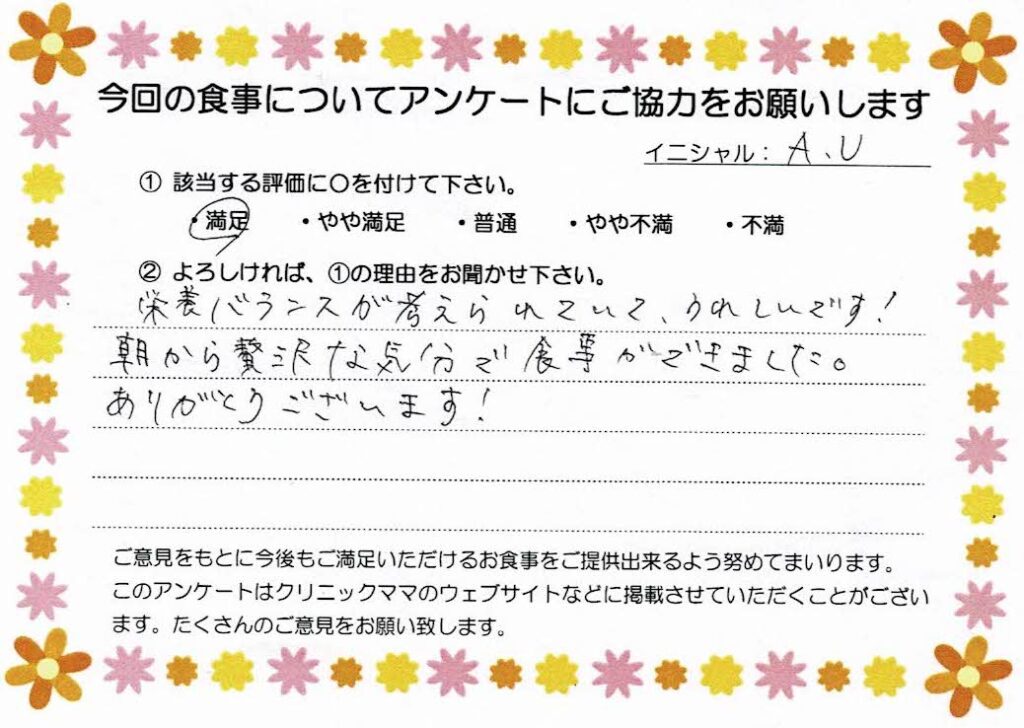 今回の食事についてアンケートにご協力をお願いします
イニシャル：A、U
① 該当する評価に〇を付けて下さい。
・満足 ・やや満足 ・普通 ・やや不満 ・不満
② よろしければ、①の理由をお聞かせ下さい。
栄養バランスが考えられていて、うれしいです！
朝から贅沢な気分で食事ができました。
ありがとうございます！
ご意見をもとに今後もご満足いただけるお食事をご提供出来るよう努めてまいります。
このアンケートはクリニックママのウェブサイトなどに掲載させていただくことがござい
ます。たくさんのご意見をお願い致します。